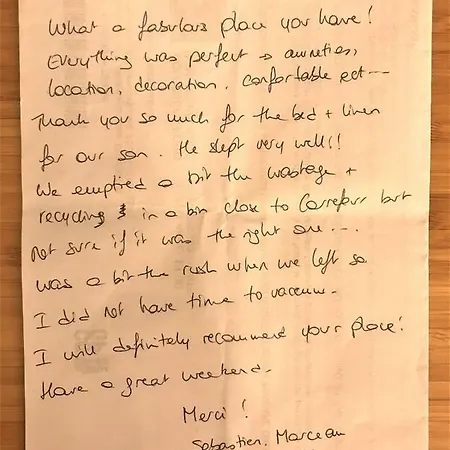 What a fabulous place you have!
Everything was perfect → amneties,
location, decoration, confortable ect---
Thank you so much for the bed + linen
for our son. He slept very well!!
We emptied a bit the wastage +
recycling in a bin close to Carrefour but
not sure if it was the right one...
was a bit the rush when we left so
I did not have time to vacuum.
I will definitely recommend your place!
Have a great weekend.
Merci!
Sebastien, Marceau